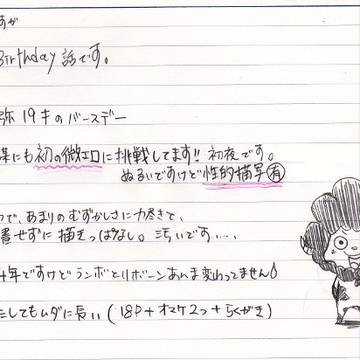 すが
Birthday話です。
弥19才のバースデー
謀にも初の微エロに挑戦してます!! 初夜です。
ぬるいですけど性的描写有
つで、あまりのむずかしさに力尽きて、
書せずに描きっぱなし。汚いです…、
4年ですけどランボとリボーンあんま変わってません
たしてもムダに長い(18P+オマケ2つ+らくがき)